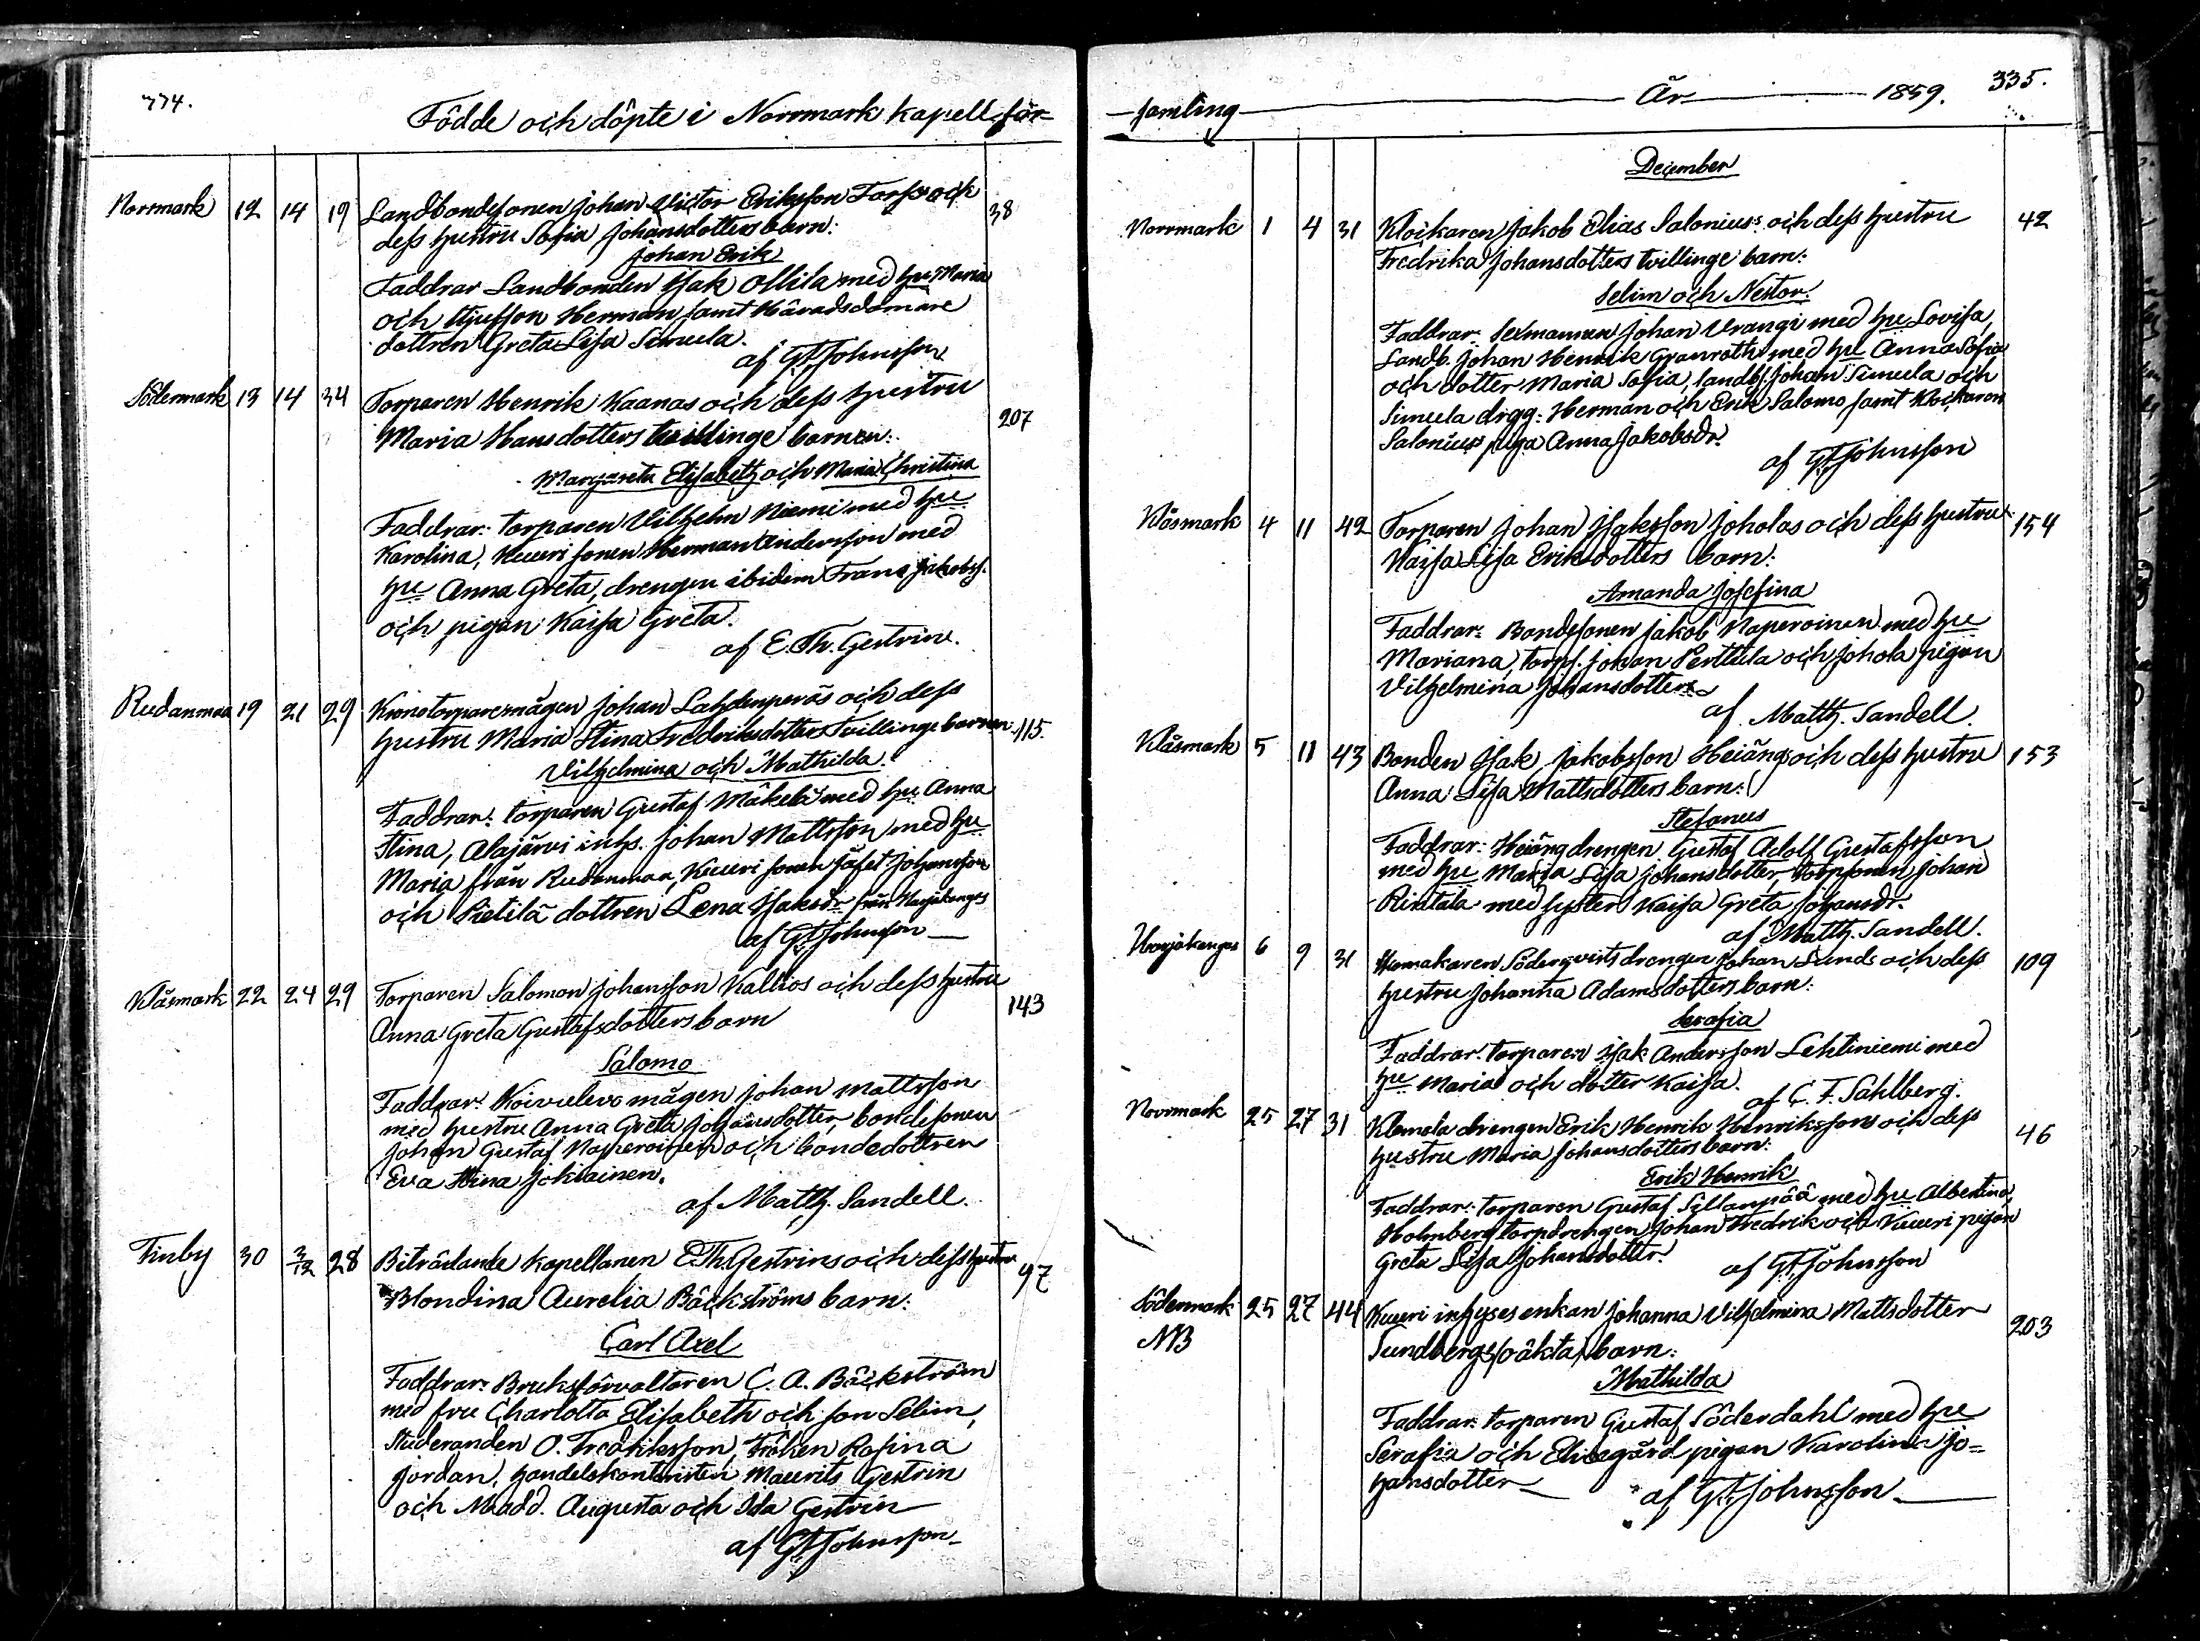 334.
Födde och döpte i Norrmark kapell för-
Norrmark 12 14 19 Landbondesonen Johan Victor Eriksson Torfs och 38
dess hustru Sofia Johansdotters barn:
Johan Erik
Faddrar Landbonden Isak Ollila med hu Maria
och Herman samt Häradsdomare
dottren Greta Lisa Simula.
af G. F. Johnsson
Södermark 13 14 34 Torparen Henrik Kaanas och dess hustru 207
Maria Hansdotters tvillinge barnen:
Margareta Elisabeth och Maria Christina
Faddrar: torparen Vilhelm Niemi med hu
Karolina, Kuuri sonen Herman Andersson med
hu Anna Greta, drengen ibidem Frans Jakobss.
och pigan Kaisa Greta.
af E. Th. Gestrin.
Rudanmaa 19 21 29 Kronotorparemågen Johan Lahdenperäs och dess
hustru Maria Stina Fredriksdotters Tvillinge barnen 115.
Vilhelmina och Mathilda.
Faddrar: torparen Gustaf Mäkelä med hu Anna
Stina, Alajärvi inhs. Johan Mattsson med hu
Maria från Rudanmaa, Kuuri sonen Jafet Johansson
och Pietilä dottren Lena Isaksdr från Harjakangas
af G. F. Johnsson
Klåsmark 22 24 29 Torparen Salomon Johansson Kallios och dess hustru 143
Anna Greta Gustafsdotters barn
Salomo
Faddrar: Koivulevo mågen Johan Mattsson
med hustru Anna Greta Johansdotter, bondesonen
Johan Gustaf Naperoinen och bondedottren
Eva Stina Jokiainen.
af Matth. Sandell.
Finby 30 3/12 28 Biträdande Kapellanen E. Th. Gestrins och dess hustru 97
Blondina Aurelia Bäckströms barn:
Carl Axel
Faddrar: Bruksförvaltaren C. A. Bäckström
med fru Charlotta Elisabeth och son Selim,
Studeranden O. Fredriksson, Fröken Rosina
Jordan, handelskontoristen Maurits Gestrin
och Madd. Augusta och Ida Gestrin
af G. F. Johnsson
335.
-samling År 1859.
December
Norrmark 1 4 31 Klockaren Jakob Elias Salonius: och dess hustru 42
Fredrika Johansdotters tvillinge barn:
Selim och Nestor.
Faddrar: Sexmannen Johan Vrangi med hu Lovisa,
Landb. Johan Henrik Granroth med hu Anna Sofia
och dotter Maria Sofia, landbs. Johan Simula och
Simula drgg: Herman och Erik Salomo samt Klockaren
Salonius piga Anna Jakobsdr.
af G. F. Johnsson
Klåsmark 4 11 42 Torparen Johan Isaksson Joholas och dess hustru 154
Kaisa Lisa Eriksdotters barn:
Amanda Josefina
Faddrar: Bondesonen Jakob Naperoinen med hu
Mariana, torps. Johan Perttula och Johola pigan
Vilhelmina Johansdotter
af Matth. Sandell.
Klåsmark 5 11 43 Bonden Isak Jakobsson Heiängs och dess hustru 153
Anna Lisa Mattsdotters barn:
Stefanus
Faddrar: Heiäng drengen Gustaf Adolf Gustafsson
med hu Maria Lisa Johansdotter, torpsonen Johan
Rintala med syster Kaisa Greta Johansdr.
af Matth. Sandell.
Harjakangas 6 9 31 Söderqvists drengen Johan Lunds och dess 109
hustru Johanna Adamsdotters barn:
Serafia
Faddrar: torparen Isak Andersson Lehtiniemi med
hu Maria och dotter Kaisa.
af C. F. Sahlberg.
Norrmark 25 27 31 Klemola drengen Erik Henrik Henrikssons och dess 46
hustru Maria Johansdotters barn:
Erik Henrik
Faddrar: torparen Gustaf Sillanpää med hu Albertina,
Holmberg torpdrengen Johan Fredrik och Kuuri pigan
Greta Lisa Johansdotter.
af G. F. Johnsson
Södermark 25 27 44 Kuuri inhyses enkan Johanna Vilhelmina Mattsdotter 203
NB Sundbergs oäkta barn:
Mathilda
Faddrar: torparen Gustaf Söderdahl med hu
Serafia och pigan Karolina Jo=
hansdotter
af G. F. Johnsson